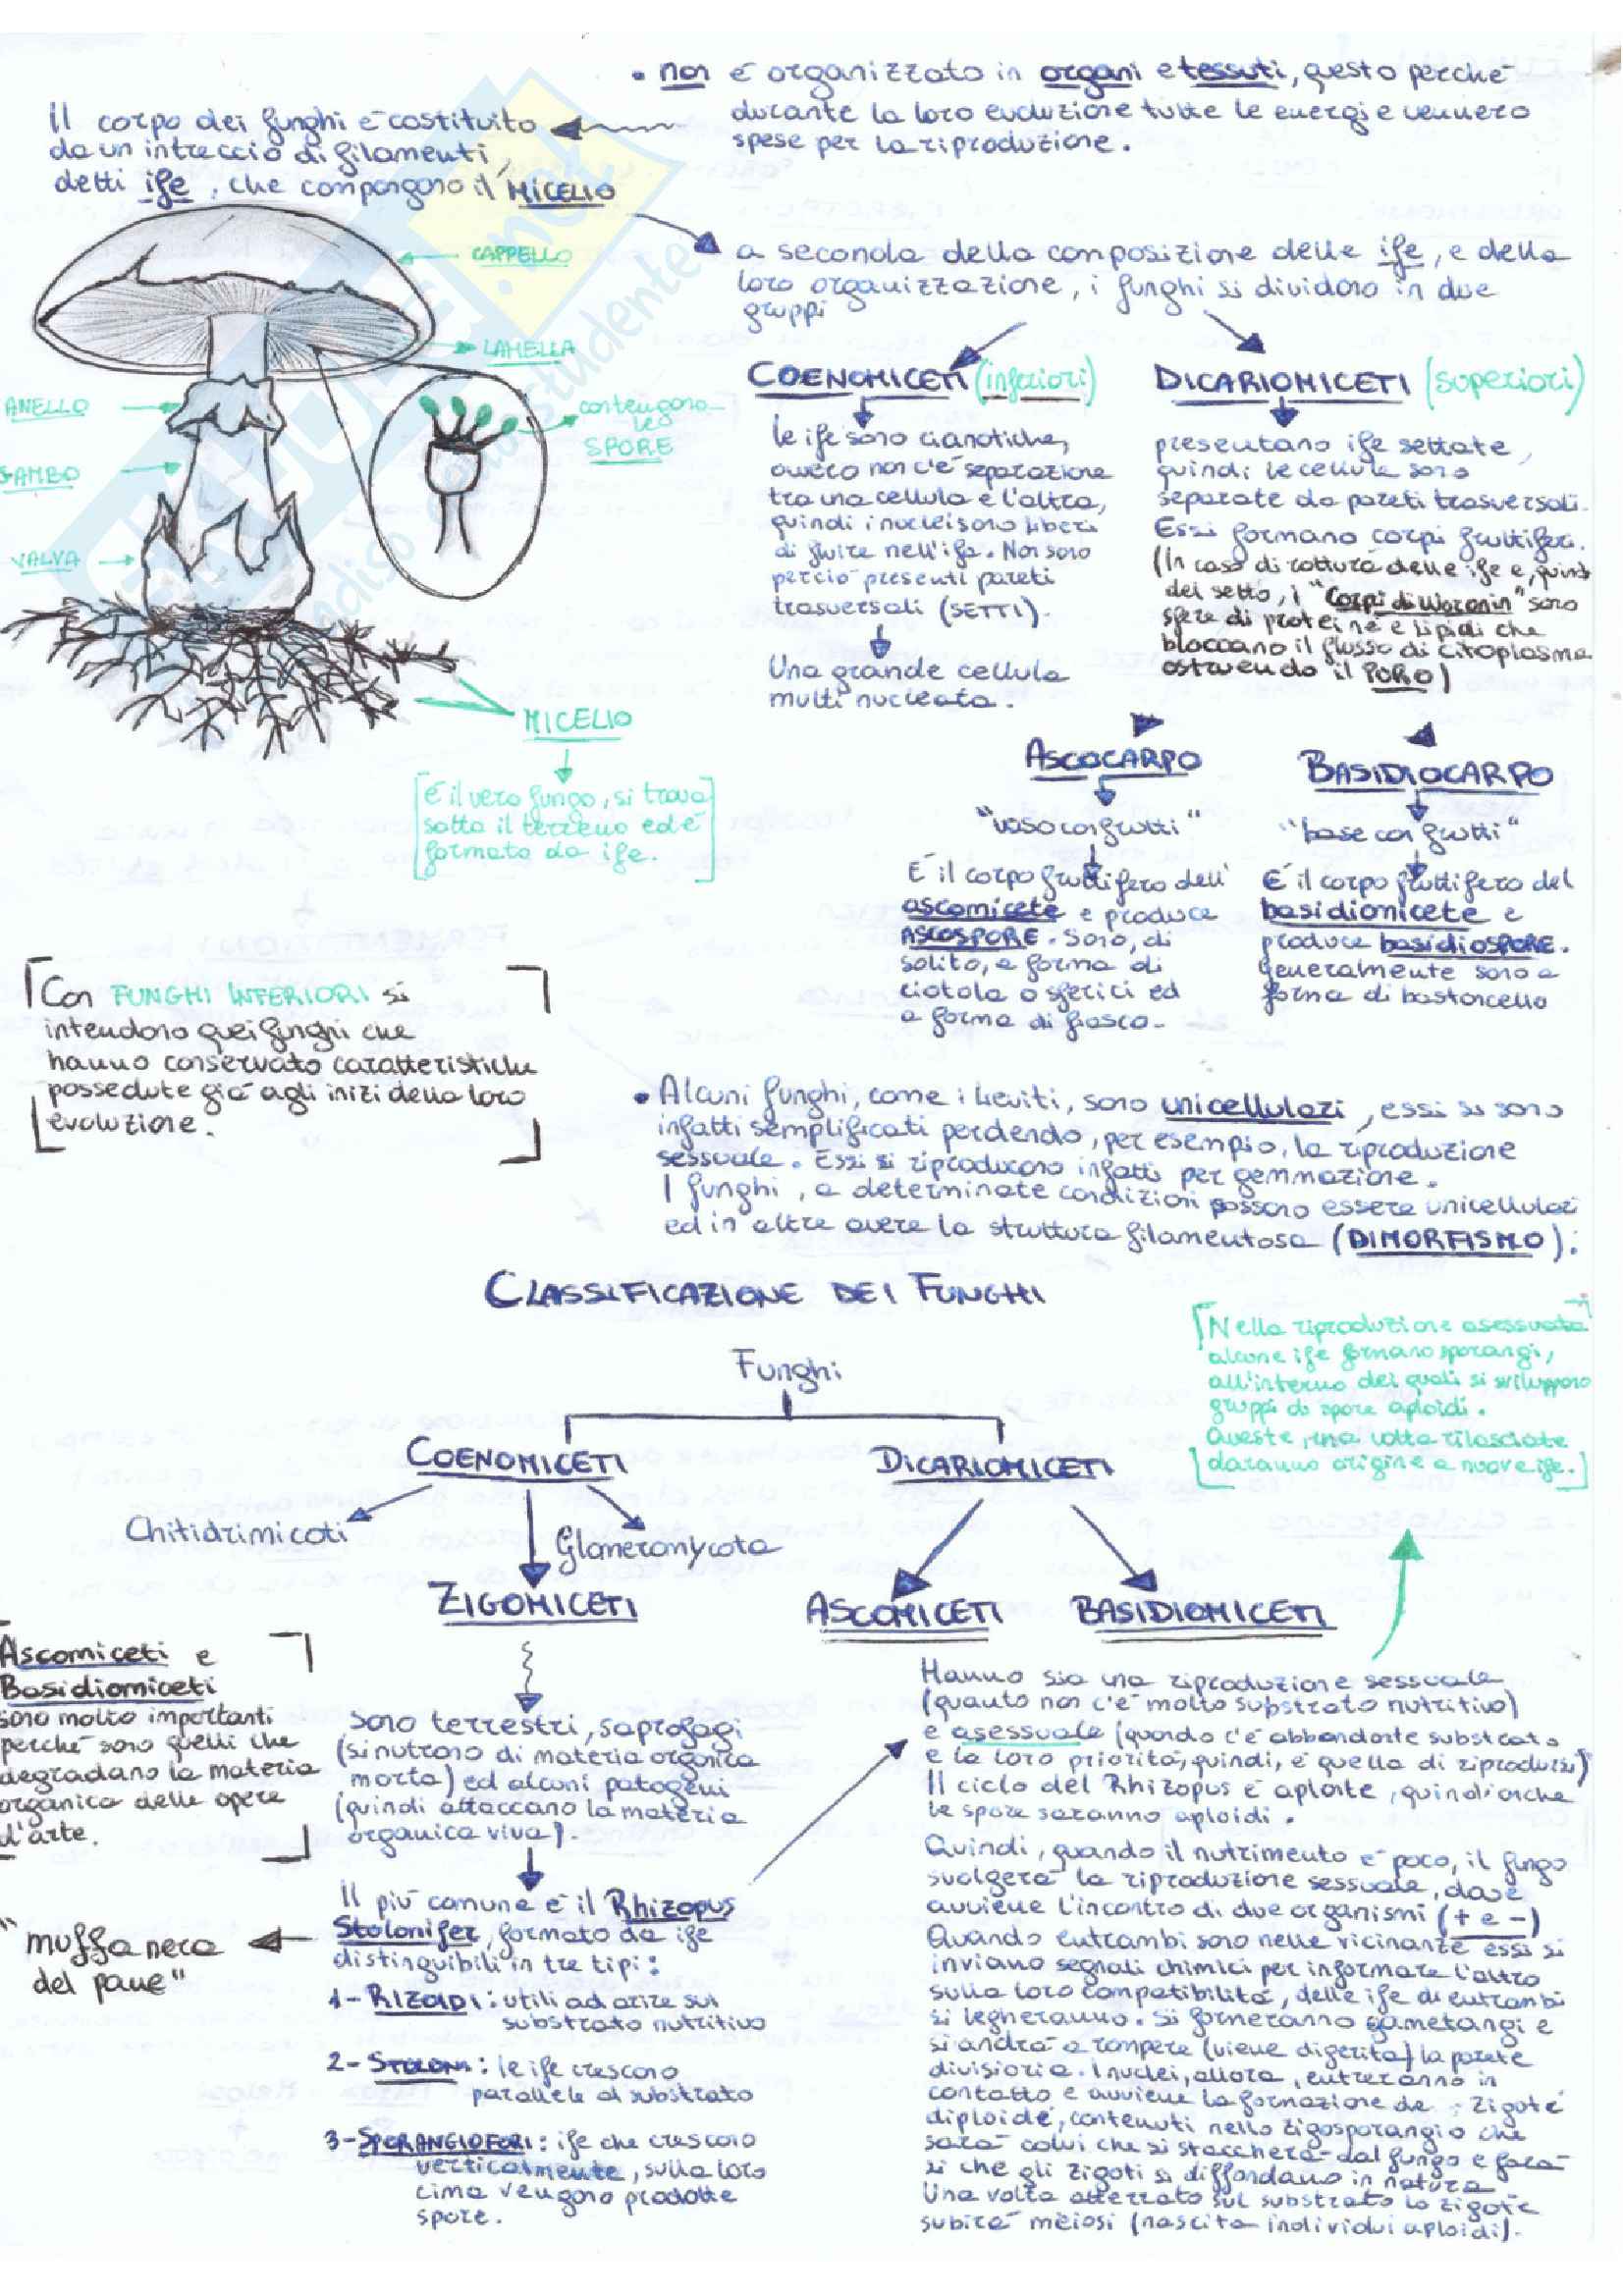 • non è organizzato in organi e tessuti, questo perché
durante la loro evoluzione tutte le energie vennero
spese per la riproduzione.
Il corpo dei funghi è costituito
da un intreccio di filamenti
detti ife, che compongono il MICELIO
CAPPELLO
LAMELLA
ANELLO
GAMBO
VALVA
contengono
le
SPORE
MICELIO
È il vero fungo, si trova
sotto il terreno ed è
formato da ife.
a seconda della composizione delle ife, e della
loro organizzazione, i funghi si dividono in due
gruppi
COENOMICETI (inferiori)
le ife sono cianotiche,
ovvero non c'è separazione
tra una cellula e l'altra,
quindi i nuclei sono liberi
di fluire nell'ifa. Non sono
perciò presenti pareti
trasversali (SETTI).
Una grande cellula
multi nucleata.
DICARIOMICETI (superiori)
presentano ife settate,
quindi le cellule sono
separate da pareti trasversali.
Essi formano corpi fruttiferi.
(In caso di rottura delle ife e, quindi
del setto, i "Corpi di Woronin" sono
sfere di proteine e lipidi che
bloccano il flusso di citoplasma
ostruendo il PORO)
ASCOCARPO
"vaso con frutti"
È il corpo fruttifero dell'
ascomicete e produce
ASCOSPORE. Sono, di
solito, a forma di
ciotola o sferici ed
a forma di fiasco.
BASIDIOCARPO
"base con frutti"
È il corpo fruttifero del
basidiomicete e
produce basidiospore.
Generalmente sono a
forma di bastoncello
Con FUNGHI INFERIORI si
intendono quei funghi che
hanno conservato caratteristiche
possedute già agli inizi della loro
evoluzione.
• Alcuni funghi, come i lieviti, sono unicellulari, essi si sono
infatti semplificati perdendo, per esempio, la riproduzione
sessuale. Essi si riproducono infatti per gemmazione.
I funghi, a determinate condizioni possono essere unicellulari
ed in altre avere la struttura filamentosa (DIMORFISMO).
CLASSIFICAZIONE DEI FUNGHI
Funghi
COENOMICETI
DICARIOMICETI
Chitidrimicoti
Glomeromycota
ZIGOMICETI
ASCOMICETI
BASIDIOMICETI
Nella riproduzione asessuata
alcune ife formano sporangi,
all'interno dei quali si sviluppano
gruppi di spore aploidi.
Queste, una volta rilasciate
daranno origine a nuove ife.
Ascomiceti e
Basidiomiceti
sono molto importanti
perché sono quelli che
degradano la materia
organica delle opere
d'arte.
Sono terrestri, saprofagi
(si nutrono di materia organica
morta) ed alcuni patogeni
(quindi attaccano la materia
organica viva).
Il più comune è il Rhizopus
Stolonifer, formato da ife
distinguibili in tre tipi:
"muffa nera
del pane"
1- RIZOIDI: utili ad unire sul
substrato nutritivo
2- STOLONI: le ife crescono
parallele al substrato
3- SPORANGIOFORI: ife che crescono
verticalmente, sulla loro
cima vengono prodotte
spore.
Hanno sia una riproduzione sessuale
(quanto non c'è molto substrato nutritivo)
e asessuale (quando c'è abbondante substrato
e la loro priorità, quindi, è quella di riprodursi)
Il ciclo del Rhizopus è aploite, quindi anche
le spore saranno aploidi.
Quindi, quando il nutrimento è poco, il fungo
svolgerà la riproduzione sessuale, dove
avviene l'incontro di due organismi (+ e -)
Quando entrambi sono nelle vicinanze essi si
inviano segnali chimici per informare l'altro
sulla loro compatibilità, delle ife di entrambi
si legheranno. Si formeranno gametangi e
si andrà a rompere (viene digerita) la parete
divisoria. I nuclei, allora, entreranno in
contatto e avviene la formazione de Zigote
diploide, contenuti nello zigosporangio che
sarà colui che si staccherà dal fungo e farà
sì che gli zigoti si diffondano in natura
Una volta atterrato sul substrato lo zigote
subirà meiosi (nascita individui aploidi).